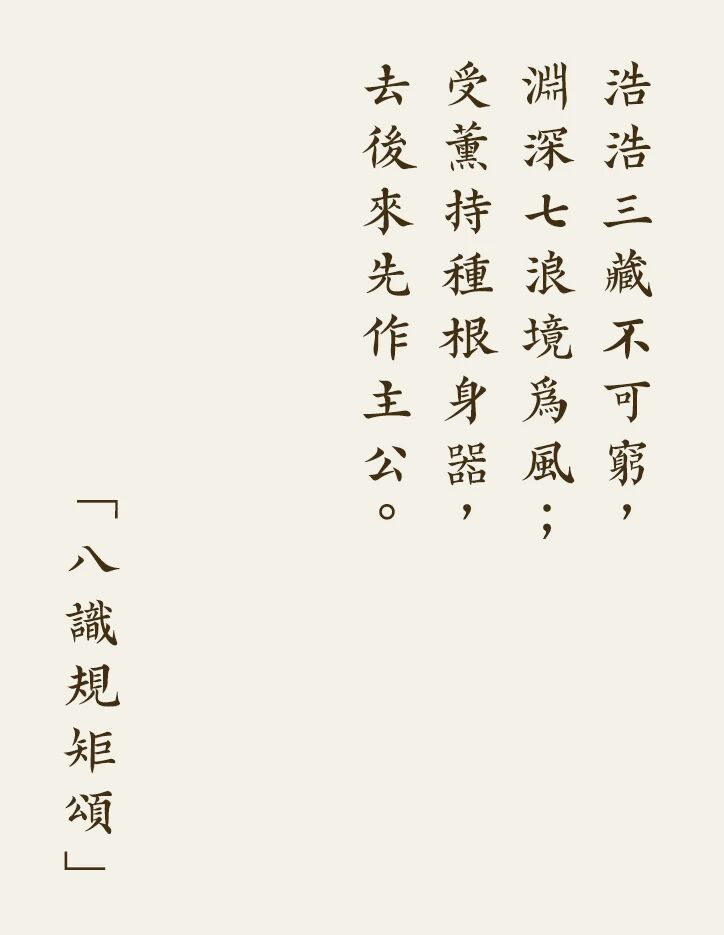 浩浩三藏不可窮，
淵深七浪境爲風；
受薰持種根身器，
去後來先作主公。
「八識規矩頌」